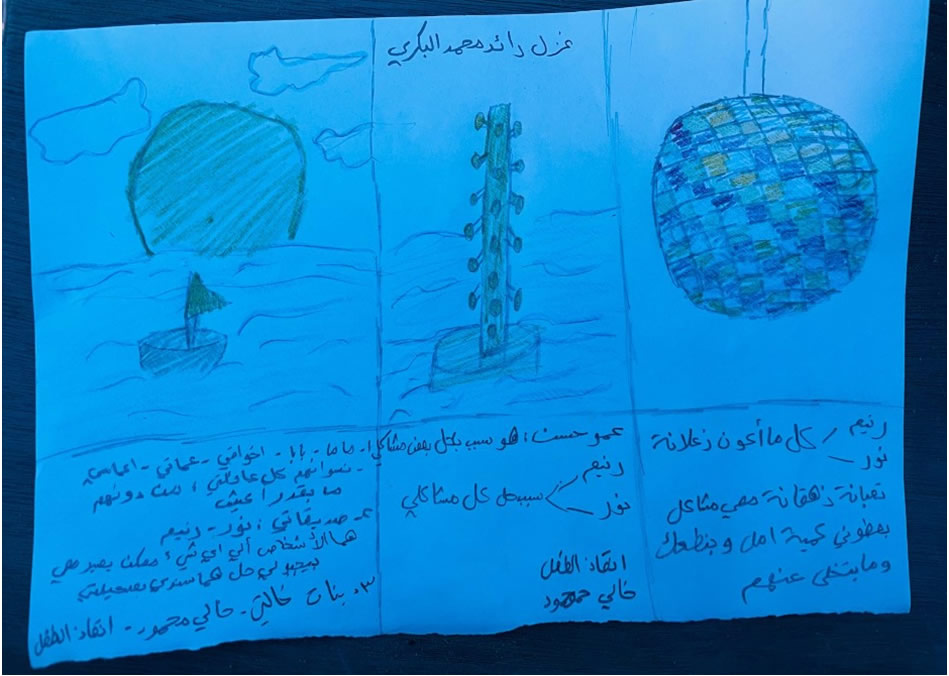 غزل رائد محمد البكري
رنيم
نور
كل ما أكون زعلانة
تعبانة زهقانة معي مشاكل
بعطوني كمية امل وبنطعك
وما بتخلى عنهم
عمو حسن : هو سبب بحل بعض مشاكلي
رنيم
نور
سبب حل كل مشاكلي
انقاذ الطفل
خالي محمود
1. ماما - بابا - اخواتي - عماتي - اعمامي
- نسوانهم كل عائلتي ، من دونهم
ما بقدر اعيش
2. صديقاتي : نور - رنيم
هما الأشخاص الي اي شي ممكن يصير معي
بيجبولي حل هما سندي
3. بنات خالتي - خالي محمود - انقاذ الطفل